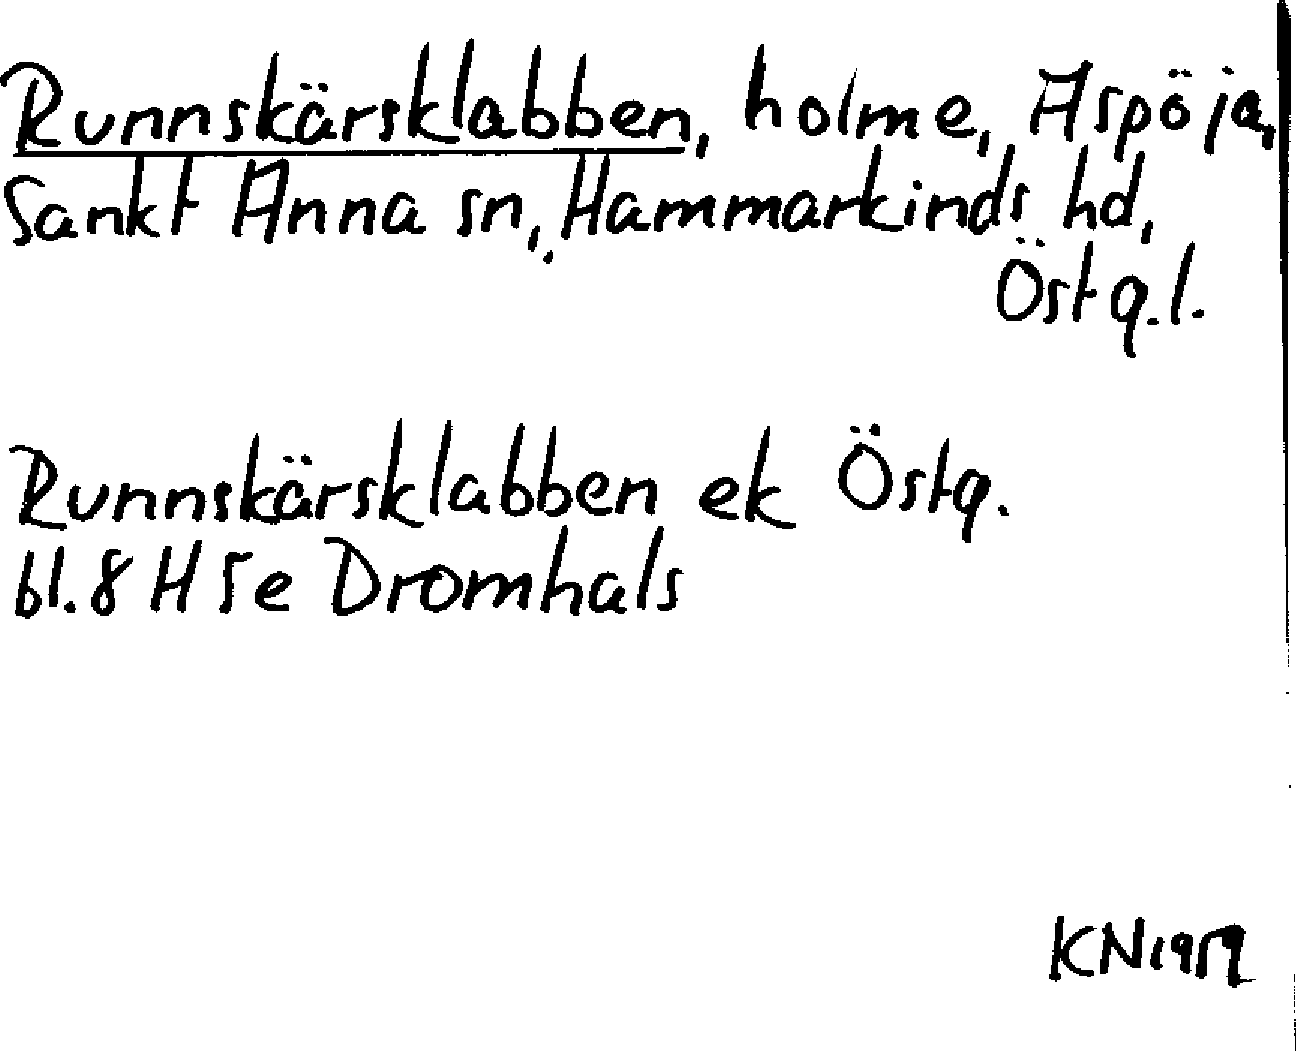 Runnskärsklabben, holme, Aspöja,
Sankt Anna sn, Hammarkinds hd,
Östg.l.
Runnskärsklabben ek Östg.
bl. 8 H 5e Dromhals